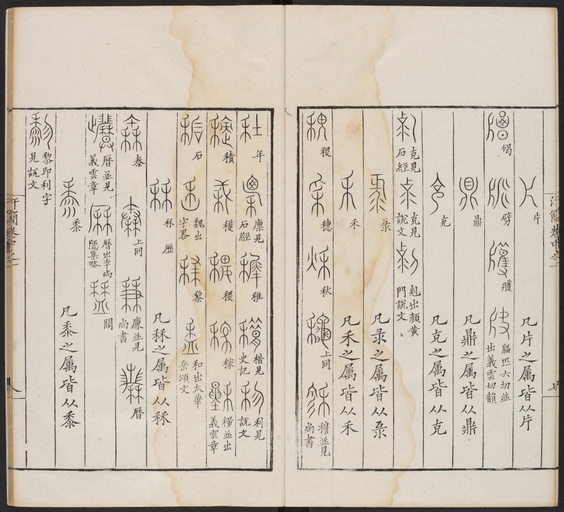 片 凡片之屬皆从片
劈 扁匹六切並出義雲切韻
鼎 凡鼎之屬皆从鼎
克 凡克之屬皆从克
克見石經 克見說文 剋出顏黃門說文
彔 凡彔之屬皆从彔
禾 凡禾之屬皆从禾
稷 穗 秋 上同 穆並見尚書
年 稟見石經 稚 稽見史記 利見說文
積 穫 稷 稼 穆並出義雲章
石 魏出字畧 黎 和出太華岳頌文
秝 歷 凡秝之屬皆从秝
秦 上同 廉並見尚書 曆
曆並見義雲章 闕
黍 凡黍之屬皆从黍
黎即利字見說文
汗簡卷中之一